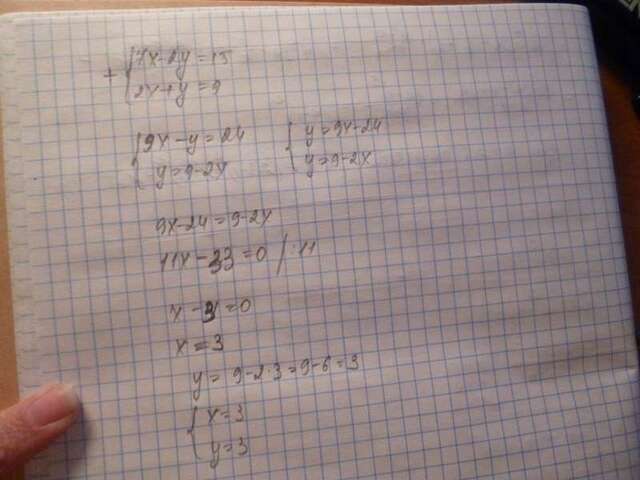 + { 7x-2y=15
2x+y=9
{ 9x-y=24 { y=9x-24
y=9-2x y=9-2x
9x-24=9-2x
11x-33=0 /:11
x-3=0
x=3
y=9-2·3=9-6=3
{ x=3
y=3